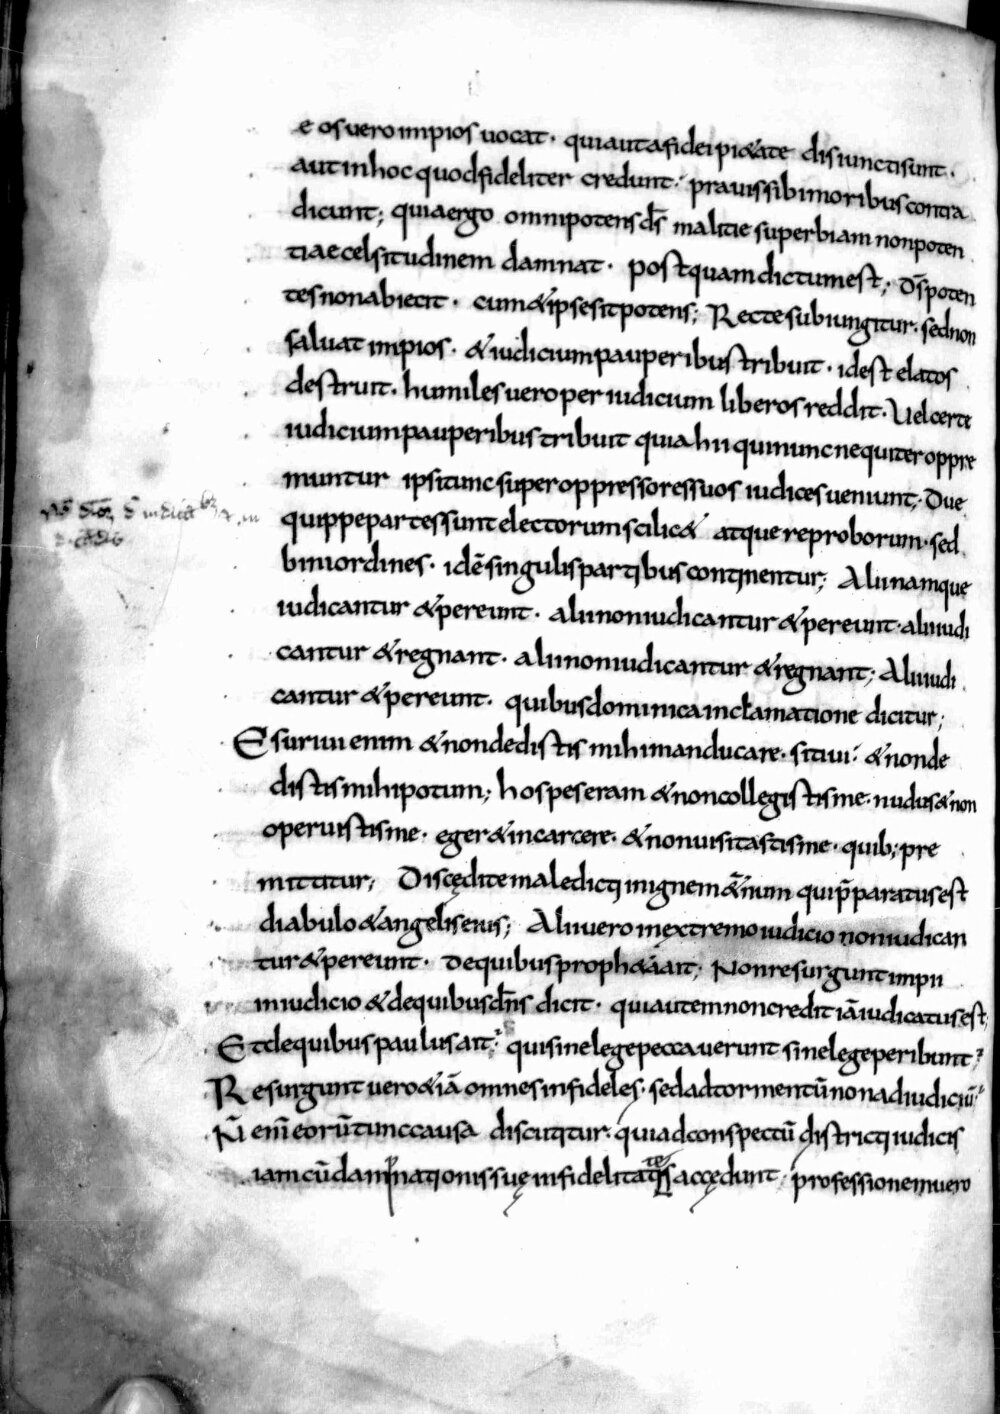 eos vero impios vocat · qui aut a fidei pi&ate disiuncti sunt ·
aut in hoc quod fideliter credunt · pravissibi moribus contra
dicunt; quia ergo omnipotens d̄s malitie superbiam non poten
tiae celsitudinem damnat · postquam dictum est; D̄s poten
tes non abiecit · cum & ipse sit potens; Recte subiungitur · sed non
salvat impios · & iudicium pauperibus tribuit · id est elatos
destruit · humiles vero per iudicium liberos reddit · Vel certe
iudicium pauperibus tribuit quia hii qui nunc nequiter oppre
muntur ipsi tunc super oppressores suos iudices veniunt; Due
quippe partes sunt electorum scilic& atque reproborum · sed
bini ordines · idē singulis partibus continentur; Alii namque
iudicantur & pereunt · alii non iudicantur & pereunt · alii iudi
cantur & regnant · alii non iudicantur & regnant; Alii iudi
cantur & pereunt · quibus dominica inclamatione dicitur;
Esurivi enim & non dedistis mihi manducare · sitivi · & non de
distis mihi potum; hospes eram & non collegistis me · nudus & non
operuistis me · eger & in carcere · & non visitastis me · quib; pre
mittitur; Discędite maledicti in ignem &̄num qui p̄paratus est
diabulo & angelis eius; Alii vero in extremo iudicio non iudican
tur & pereunt · De quibus proph&a ait; Non resurgunt impii
in iudicio & de quibus dn̄s dicit · qui autem non credit iā iudicatus est
Et de quibus paulus ait · qui sine lege peccaverunt sine lege peribunt
Resurgunt vero &iā omnes infideles · sed ad tormentū non ad iudiciū
N̄ enī eorū tunc causa discutitur · quia d conspectū districti iudicis
iam cū damnationis suę infidelitatis accędunt · professionem vero